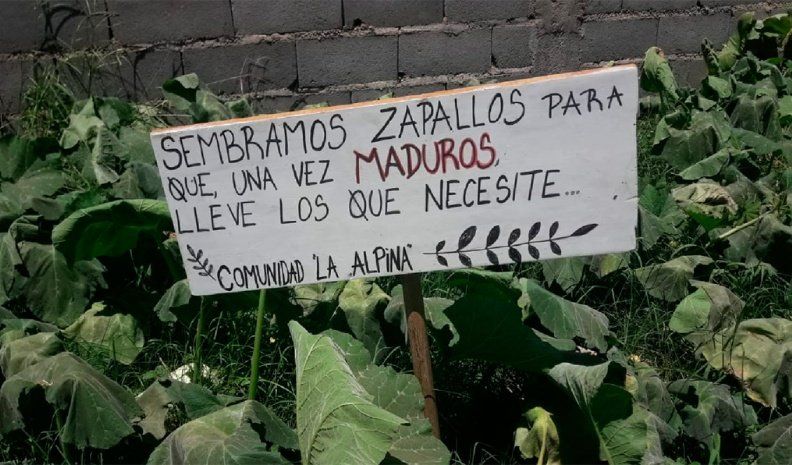 SEMBRAMOS ZAPALLOS PARA
QUE, UNA VEZ MADUROS,
LLEVE LOS QUE NECESITE...
COMUNIDAD "LA ALPINA"